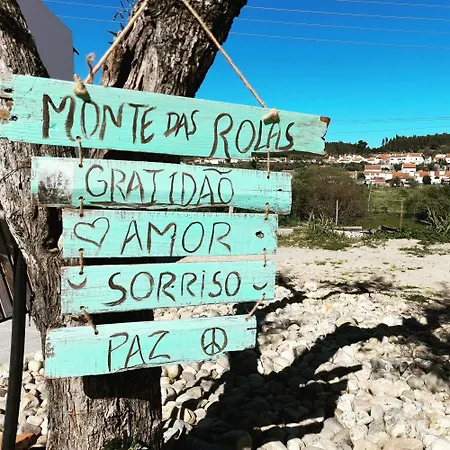 MONTE DAS ROLAS
GRATIDÃO
AMOR
SORRISO
PAZ